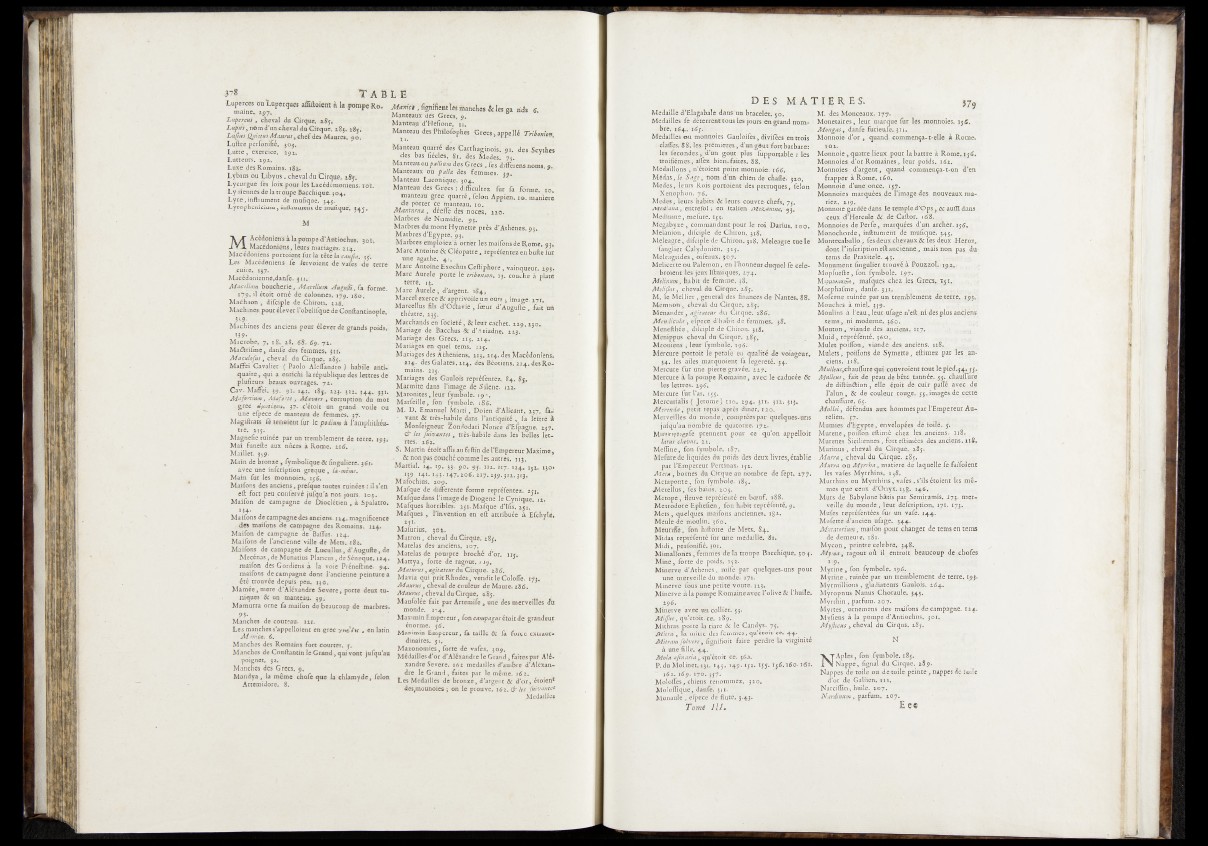 378 TABLE
Luperces ou Luperques assistoient à la pompe Ro-
maine. 297.
Lupercus, cheval du Cirque. 285.
Lupus, nom d'un cheval du Cirque. 285. 287.
Lusius Quietus Maurus, chef des Maures. 90.
Lustre perfumé. 305.
Lutte, exercice. 292.
Lutteurs. 292.
Luxe des Romains. 182.
Lybius ou Libyus, cheval du Cirque. 285.
Lycurgue fit des loix pour les Lacedémoniens. 101.
Lydiennes de la troupe Bacchique. 304.
Lyre, instrument de musique. 345.
Lyrophenicium, instrument de musique. 345.
M
Macédoniens à la pompe d'Antiochus. 301.
Macedoniens, leurs mariages. 214.
Macédoniens portoient sur la tête la causia. 35.
Les Macédoniens se servoient de vases de terre
cuite. 147.
Macédonienne, danse. 311.
Macellum boucherie, Macellum Augusti, sa forme.
179. il étoit orné de colonnes. 179. 180.
Machaon, disciple de Chiron. 318.
Machines pour élever l'obelisque de Constantinople.
319.
Machines des anciens pour élever de grands poids.
339.
Macrobe. 7. 18. 28. 68. 69. 72.
Mactrisme, danse des femmes. 311.
Maculosus, cheval du Cirque. 285.
Maffei Cavalier (Paolo Alessandro) habile anti-
quaire, qui a enrichi la république des lettres de
plusieurs beaux ouvrages. 72.
Cav. Maffei. 59. 92. 142. 189. 223. 312. 344. 351.
grec 37. c'étoit un grand voile ou
une espece de manteau de femmes. 37.
Magistrats se tenoient sur le podium à l'amphitheâ-
tre. 235.
Magnesie ruinée par un tremblement de terre. 193.
Mai funeste aux nôces à Rome. 216.
Maillet. 359.
Main de bronze, symbolique & singuliere. 361.
avec une inscription greque, là-même.
Main sur les monnoies. 156.
Maisons des anciens, presque toutes ruinées : il s'en
est fort peu conservé jusqu'à nos jours. 103.
Maison de campagne de Diocletien, à Spalatro.
134.
Maisons de campagne des anciens. 124. magnificence
des maisons de campagne des Romains. 124.
Maison de campagne de Bassus. 124.
Maisons de l'ancienne ville de Mets. 182.
Maisons de campagne de Lucullus, d'Auguste, de
Mecénas, de Munatius Plancus, de Séneque, 124.
maison des Gordiens à la voie Prénestine. 94.
maisons de campagne dont l'ancienne peinture a
été trouvée depuis peu. 130.
Mamée, mere d'Alexandre Severe, porte deux tu-
niques & un manteau. 39.
Mamurra orne sa maison de beaucoup de marbres.
95.
Manches de couteau. 122.
Les manches s'appelloient en grec , en latin
Manicæ. 6.
Manches des Romains fort courtes. 5.
Manches de Constantin le Grand, qui vont jusqu'au
poignet. 52.
Manches des Grecs. 9.
Mandya, la même chose que la chlamyde, selon
Artemidore. 8.
Manicæ, signifient les manches & les gands 6.
Manteaux des Grecs. 9.
Manteau d'Hesione. 11.
Manteau des Philosophes Grecs, appellé Tribonion.
Manteau quarré des Carthaginois. 91. des Scythes
des bas siécles. 81. des Medes. 75.
Manteau ou pallium des Grecs, ses differens noms. 9.
Manteaux ou palla des femmes. 39.
Manteau Laconique. 304.
Manteau des Grecs : difficultez sur sa forme. 10.
manteau grec quarré, selon Appien. 10. maniere
de porter ce manteau. 10.
Manturna, déesse des noces. 220.
Marbres de Numidie. 95.
Marbres du mont Hymette près d'Athenes. 95.
Marbres d'Egypte. 95.
Marbres emploiez à orner les maisons de Rome. 95.
Marc Antoine & Cléopatre, representez en buste sur
une agathe. 4
Marc Antoine Exochus Cestiphore, vainqueur. 295.
Marc Aurele porte le tribonion. 13. couche à plate
terre. 12.
Marc Aurele, d'argent. 184.
Marcel exerce & apprivoise un ours, image 271.
Marcellus fils d'Octavie, sœur d'Auguste, fait un
theatre. 235.
Marchands en societé, & leur cachet. 229. 230.
Mariage de Bacchus & d'Ariadne. 223.
Mariage des Grecs. 213. 214.
Mariages en quel tems. 215.
Mariages des Atheniens. 213. 214. des Macédoniens.
214. des Galates. 214. des Béotiens. 214. des Ro-
mains. 215.
Mariages des Gaulois représentez. 84. 85.
Marmite dans l'image de Silene. 122.
Marmotes, leur symbole. 190.
Marseille, son symbole. 186.
M. D. Emanuel Marti, Doien d'Alicant. 237. sa-
vant & très-habile dans l'antiquité, sa lettre à
Monseigneur Zondodari Nonce d'Espagne. 257.
& les suivantes, très-habile dans les belles let-
tres. 262.
S. Martin étoit assis au festin de l'Empereur Maxime,
& non pas couché comme les autres. 113.
Masochim. 209.
Masque de differente forme représentez. 251.
Masque dans l'image de Diogene le Cynique. 12.
Masques horribles. 251. Masque d'Isis. 252.
Masques, l'invention en est attribuée à Eschyle.
251.
Masurius. 302.
Matron, cheval du Cirque. 285.
Matelas des anciens. 107.
Matelas de pourpre broché d'or. 115.
Mattya, sorte de ragout. 119.
Maturus, agitateur du Cirque. 286.
Mavia qui prit Rhodes, vendit le Colosse. 173.
Maurus, cheval de couleur de Maure. 286.
Maurus, cheval du Cirque. 285.
Mausolée fait par Artemise, une des merveilles du
monde. 174.
Maximin Empereur, son campagus étoit de grandeur
énorme. 56.
Maximin Empereur, sa taille & sa force extraor-
dinaires. 51.
Mazonomies, sorte de vases. 309.
Médailles d'or d'Alexandre le Grand, faites par Alé-
xandre Severe. 162. medailles d'ambre d'Alexan-
dre le Grand, faites par le même. 162.
Les Medailles de bronze, d'argent & d'or, étoient
des monnoies ; on le prouve. 162. & les suivantes
Medailles
DES MATIERES. 379
Medaille d'Elagabale dans un bracelet. 50.
Medailles se déterrent tous les jours en grand nom-
bre. 164. 165.
Medailles ou monnoies Gauloises, divisées en trois
classes. 88. les premieres, d'un gout fort barbare:
les secondes, d'un gout plus supportable : les
troisiémes, assez bien faites. 88.
Medaillons, n'étoient point monnoie. 166.
Medas, le Sage, nom d'un chien de chasse. 320.
Medes, leurs Rois portoient des perruques, selon
Xenophon. 76.
Medes, leurs habits & leurs couvre chefs. 75.
, entresol, en italien Mezzanino. 93.
Medimne, mesure. 151.
Megabyze, commandant pour le roi Darius. 200.
Melanion, disciple de Chiron. 318.
Meleagre, disciple de Chiron. 318. Meleagre tue le
sanglier Calydonien. 325.
Meleagrides, oiseaux. 327.
Melicerte ou Palemon, en l'honneur duquel se cele-
broient les jeux Isthmiques. 274.
, habit de femme. 38.
Melissus, cheval du Cirque. 285.
M. le Mellier, general des finances de Nantes. 88.
Memnon, cheval du Cirque. 285.
Menander, agitateur du Cirque. 286.
, espece d'habit de femmes. 38.
Menesthée, disciple de Chiron. 318.
Menippus cheval du Cirque. 285.
Meouions, leur symbole. 196.
Mercure portoit le petase en qualité de voiageur.
34. les ailes marquoient sa legereté. 34.
Mercure sur une pierre gravée. 227.
Mercure à la pompe Romaine, avec le caducée &
les lettres. 296.
Mercure sur l'as. 155.
Mercurialis (Jerome) 110. 294. 311. 312. 313.
Merenda, petit repas après diner. 120.
Merveilles du monde, comptées par quelques-uns
jusqu'au nombre de quatorze. 172.
prennent pour ce qu'on appelloit
latus clavus. 21.
Messine, son symbole. 187.
Mesure de liquides du poids des deux livres, établie
par l'Empereur Pertinax. 152.
Metæ, bornes du Cirque au nombre de sept. 277.
Metaponte, son symbole. 185.
Metellus, ses bains. 205.
Metope, fleuve représenté en bœuf. 188.
Metrodore Ephesien, son habit représenté. 9.
Mets, quelques maisons anciennes. 182.
Meule de moulin. 360.
Meurisse, son histoire de Mets. 84.
Midas représenté sur une medaille. 81.
Midi, personifié. 301.
Mimallones, femmes de la troupe Bacchique. 304.
Mine, sorte de poids. 152.
Minerve d'Athenes, mise par quelques-uns pour
une merveille du monde. 172.
Minerve sous une petite voute. 125.
Minerve à la pompe Romaine avec l'olive & l'huile.
296.
Minerve avec un collier. 53.
Missus, qu'étoit-ce. 289.
Mithras porte la tiare & le Candys. 75.
Mitra, la mitre des femmes, qu'étoit-ce. 44.
Mitram solvere, signifioit faire perdre la virginité
à une fille. 44.
Mola asinaria, qu'étoit ce. 360.
P. du Molinet. 131. 143. 149. 152. 155. 156. 160. 161.
162. 169. 170. 337.
Molosses, chiens renommez. 320.
Molossique, danse. 311.
Monaule, espece de flute. 343.
Tome III.
M. des Monceaux. 177.
Monetaires, leur marque sur les monnoies. 156.
Mongas, danse furieuse. 311.
Monnoie d'or, quand commença-t-elle à Rome.
161.
Monnoie, quatre lieux pour la battre à Rome. 156.
Monnoies d'or Romaines, leur poids. 162.
Monnoies d'argent, quand commença-t-on d'en
frapper à Rome. 160.
Monnoie d'une once. 157.
Monnoies marquées de l'image des nouveaux ma-
riez. 219.
Monnoie gardée dans le temple d'Ops, & aussi dans
ceux d'Hercule & de Castor. 168.
Monnoies de Perse, marquées d'un archer. 156.
Monochorde, instrument de musique. 345.
Montecaballo, ses deux chevaux & les deux Heros,
dont l'inscription est ancienne, mais non pas du
tems de Praxitele. 43.
Monument singulier trouvé à Pouzzol. 192.
Mopsueste, son symbole. 197.
, masques chez les Grecs. 251.
Morphasme, danse. 311.
Mosterne ruinée par un tremblement de terre. 193.
Mouches à miel. 319.
Moulins à l'eau, leur usage n'est ni des plus anciens
tems, ni moderne. 360.
Mouton, viande des anciens. 117.
Muid, représenté. 360.
Mulet poisson, viande des anciens. 118.
Mulets, poissons de Symette, estimez par les an-
ciens. 118.
Mulleus, chaussure qui couvroient tout le pied. 54. 55.
Mulleus, fait de peau de bête tannée. 55. chaussure
de distinction, elle étoit de cuir passé avec de
l'alun, & de couleur rouge. 55. images de cette
chaussure. 65.
Mullei, défendus aux hommes par l'Empereur Au-
relien. 57.
Mumies d'Egypte, envelopées de toile. 5.
Murene, poisson estimé chez les anciens. 118.
Murenes Siciliennes, fort estimées des anciens. 118.
Murinus, cheval du Cirque. 285.
Murra, cheval du Cirque. 285.
Murra ou Myrrha, matiere de laquelle se faisoient
les vases Myrrhins. 148.
Murrhins ou Myrrhins, vases, s'ils étoient les mê-
mes que ceux d'Onyx. 148. 146.
Murs de Babylone bâtis par Semiramis. 173. mer-
veille du monde, leur description. 172. 173.
Muses représentées sur un vase. 144.
Musetes d'ancien usage. 344.
Mutatorium, maison pour changer de tems en tems
de demeure. 181.
Mycon, peintre celebre. 348.
Myma, ragout où il entroit beaucoup de choses
119.
Myrine, son symbole. 196.
Myrine, ruinée par un tremblement de terre. 193.
Myrmillions, gladiateurs Gaulois. 266.
Myropnus Nanus Choraule. 345.
Myrrhin, parfum. 207.
Myrtes, ornemens des maisons de campagne. 124.
Mysiens à la pompe d'Antiochus. 301.
Mysticus, cheval du Cirque. 285.
N
Naples, son symbole. 185.
Nappe, signal du Cirque. 289.
Nappes de toile ou de toile peinte, nappes de toile
d'or de Gallien. 111.
Narcisses, huile. 207.
Nardinum, parfum. 207.
Eee